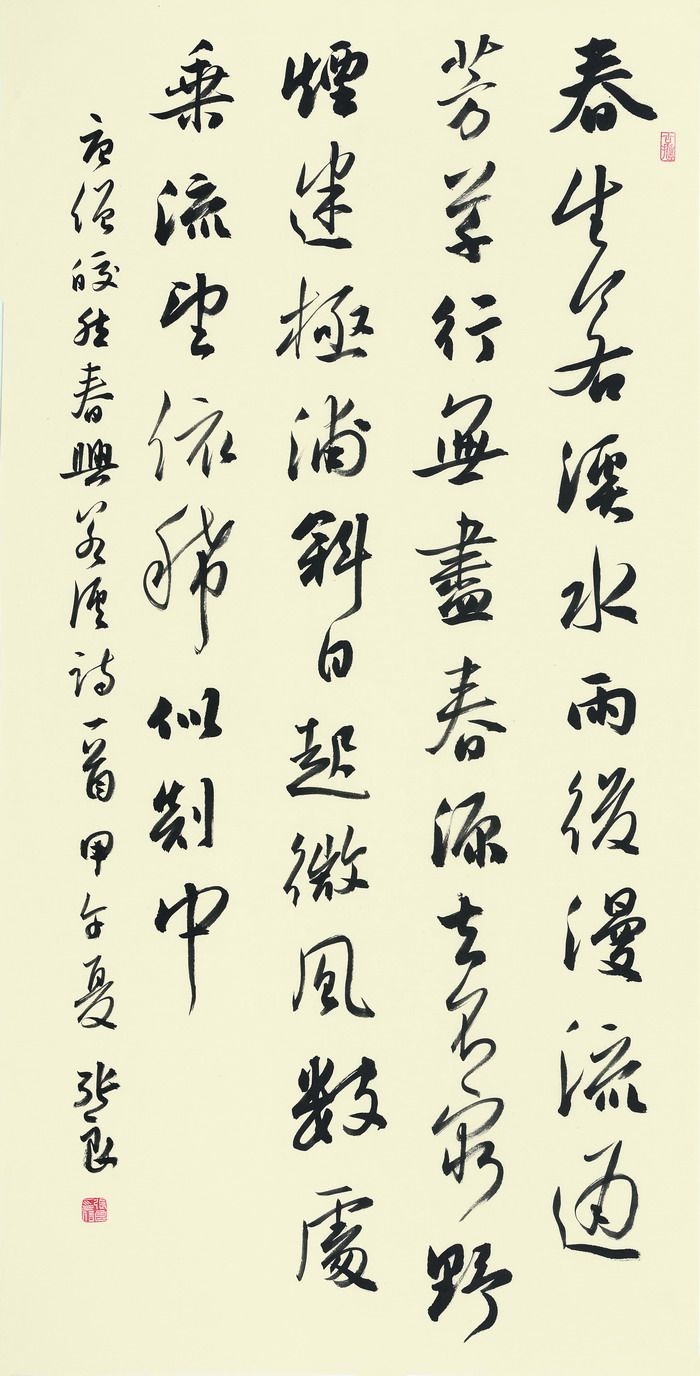 春生若溪水雨後漫流通
芳草行無盡春源去不窮野
煙迷極浦斜日起微風數處
乘流望依稀似剡中
唐僧皎然春興若溪詩一首甲午夏 張良